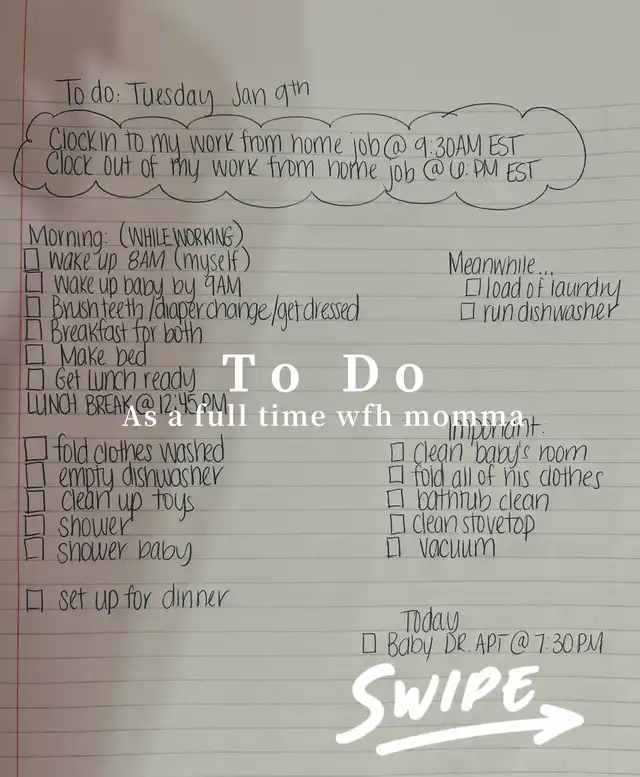 To do: Tuesday Jan 9th
Clock in to my work from home job @ 9:30AM EST
Clock out of my work from home job @ 6:PM EST
Morning: (WHILE WORKING)
wake up 8AM (myself)
wake up baby by 9AM
Brush teeth /diaper change/get dressed
Breakfast for both
Make bed
Get Lunch ready
LUNCH BREAK @ 12:45PM
Meanwhile...
load of laundry
run dishwasher
To Do
As a full time wfh momma
fold clothes washed
empty dishwasher
clean up toys
shower
shower baby
set up for dinner
Important:
clean baby's room
fold all of his clothes
bathtub clean
clean stovetop
vacuum
Today
Baby DR. APT @ 7:30PM
SWIPE